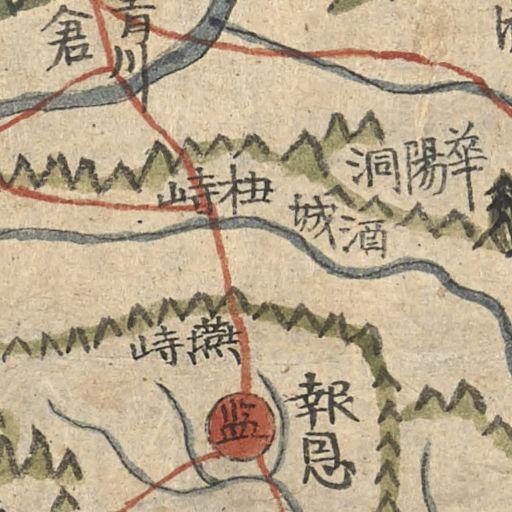 青川
倉
華陽洞
柚峙
酒城
撫峙
報恩
监